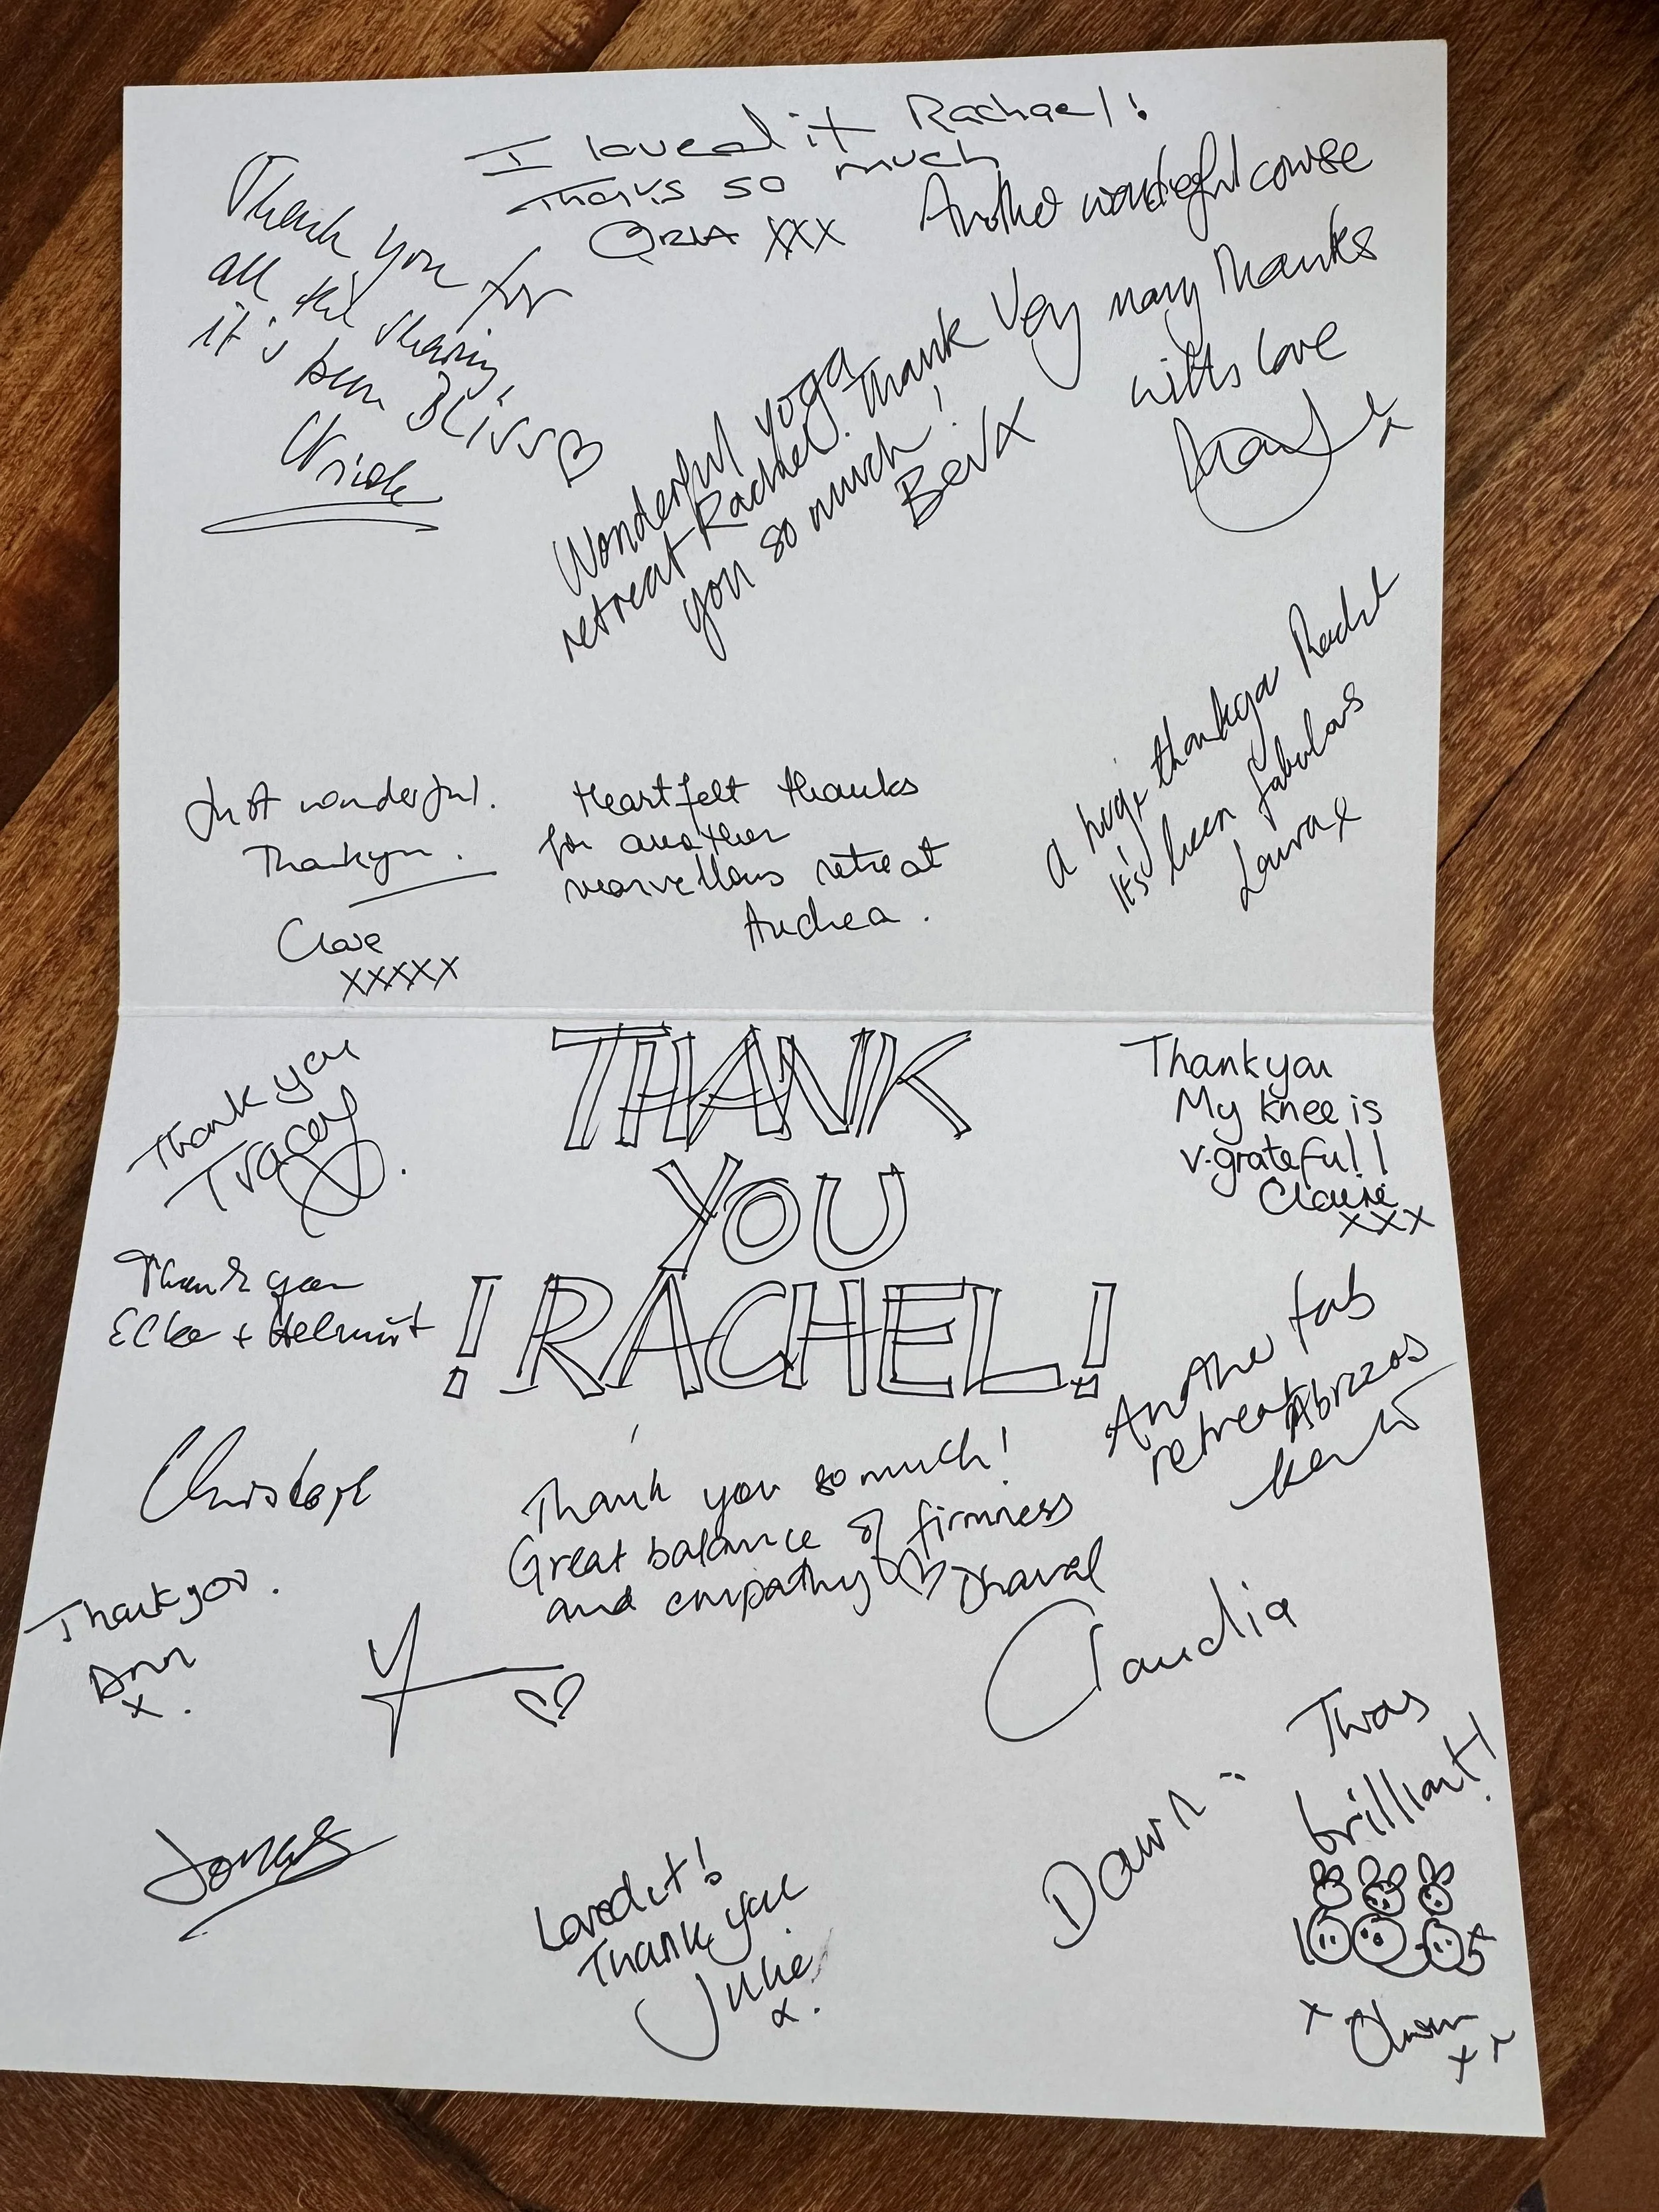 I loved it Rachael!
Thanks so much
ORLA xxx
Thank you for
all the sharing,
it's been BLiss
Another wonderful course
Very many thanks
with love
x
Wonderful yoga
retreat Rachel. Thank
you so much!
Bev x
a huge thankyou Rachel
It's been fabulous
Laura x
Just wonderful.
Thankyou.
Clare
xxxxx
Heartfelt thanks
for another
marvellous retreat
Andrea.
THANK
YOU
! RACHEL!
Thank you
Tracey
Thankyou
My knee is
v. grateful!
Claire
xxx
Thank you
Elke + Helmut
Another fab
retreat Abrazos
Christoph
Thank you so much!
Great balance of firmness
and empathy Dhaval
Thankyou.
Ann
x.
Claudia
Twas
brilliant!
Dawn
Jonas
Loved it!
Thank you
Julie
x.
x
x x